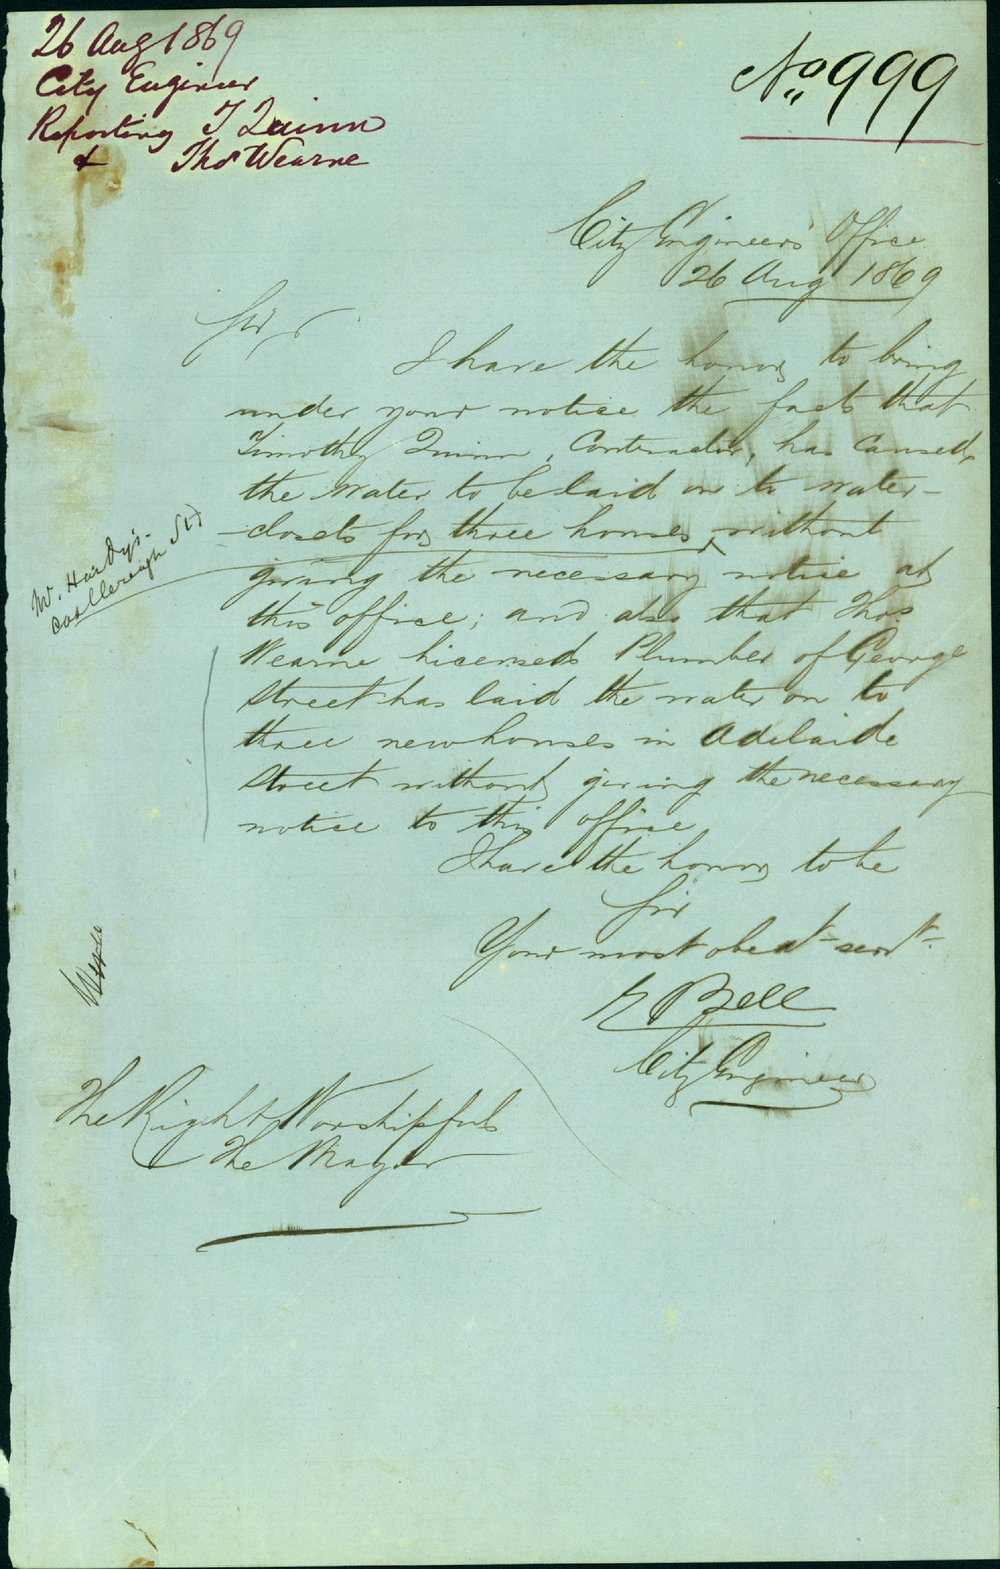 26 Aug 1869
City Engineer
Reporting T Quinn
& Thos Wearne
No. 999
City Engineers Office
26 Aug 1869
Sir,
I have the honor to bring
under your notice the facts that
Timothy Quinn, Contractor, has caused
the water to be laid on to water-
closets for three houses, without
giving the necessary notice at
this office; and also that Thos.
Wearne Licensed Plumber of George
Street has laid the water on to
three new houses in Adelaide
Street without giving the necessary
notice to this office
I have the honor to be
Sir
Your most obedt servt.
E Bell
City Engineer
W. Hardy's
St
The Right Worshipful
The Mayor